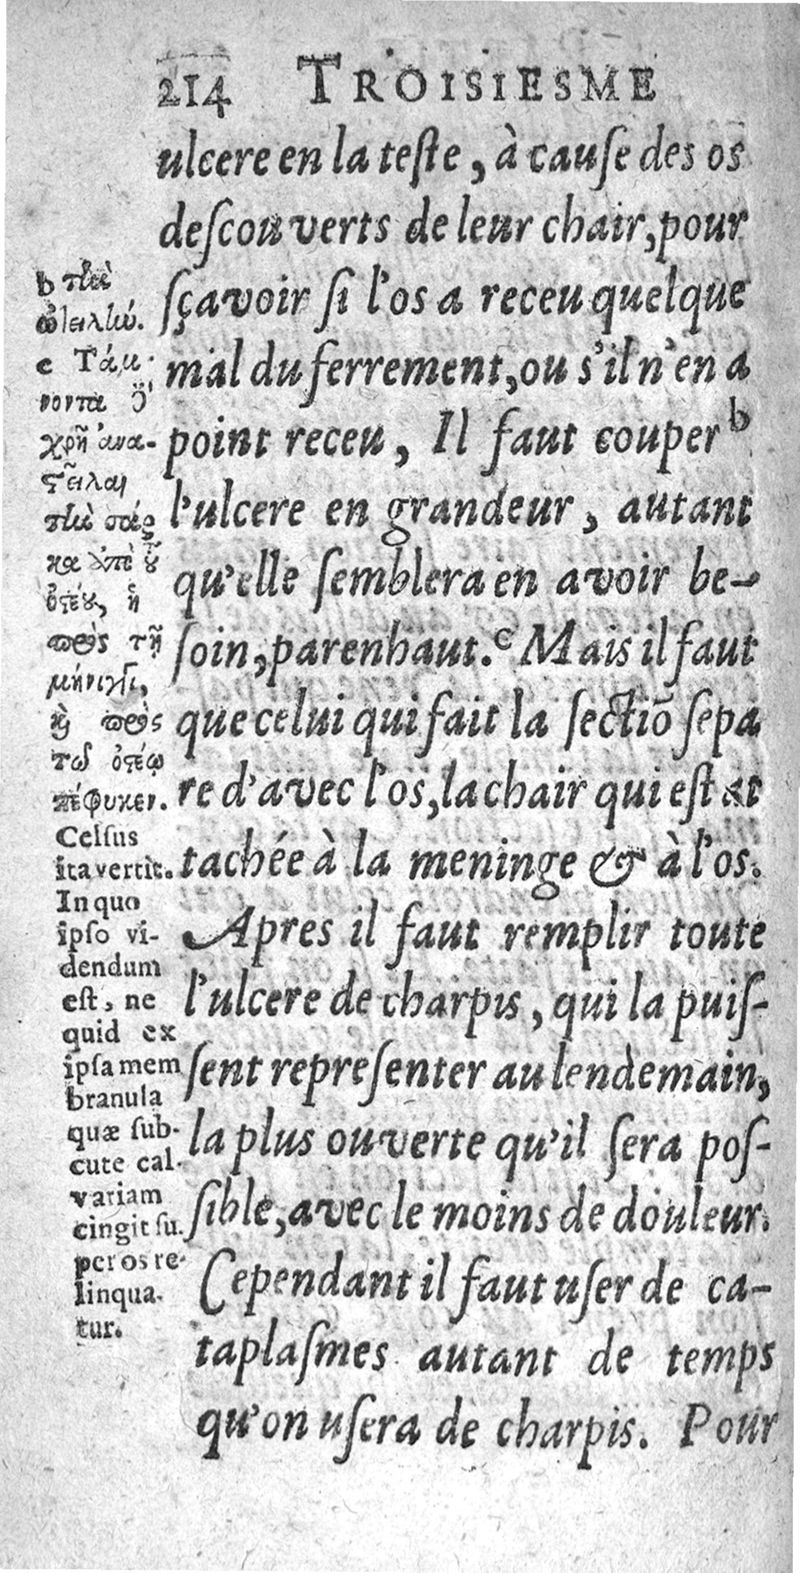 214 TROISIESME
ulcere en la teſte, à cauſe des os
deſcouverts de leur chair, pour
ſçavoir ſi l'os a receu quelque
mal du ferrement, ou s'il n'en a
point receu, Il faut couper b
l'ulcere en grandeur, autant
qu'elle ſemblera en avoir be-
ſoin, par enhaut. c Mais il faut
que celui qui fait la ſectiõ ſepa
re d'avec l'os, la chair qui eſt at
tachée à la meninge & à l'os.
Apres il faut remplir toute
l'ulcere de charpis, qui la puiſ-
ſent repreſenter au lendemain,
la plus ouverte qu'il ſera poſ-
ſible, avec le moins de douleur.
Cependant il faut uſer de ca-
taplaſmes autant de temps
qu'on uſera de charpis. Pour
b τὴν
ὠτειλήν.
c Τάμ-
νοντα
χρῆ ἀνα-
στεῖλαι
τὴν σάρ
κα
ὀστέου, ἢ
πρὸς τῇ
μήνιγγι,
καὶ πρὸς
τῷ ὀστέῳ
πέφυκεν.
Celſus
ita vertit.
In quo
ipſo vi-
dendum
eſt, ne
quid ex
ipſa mem
branula
quæ ſub-
cute cal-
variam
cingit ſu.
per os re-
linqua-
tur.